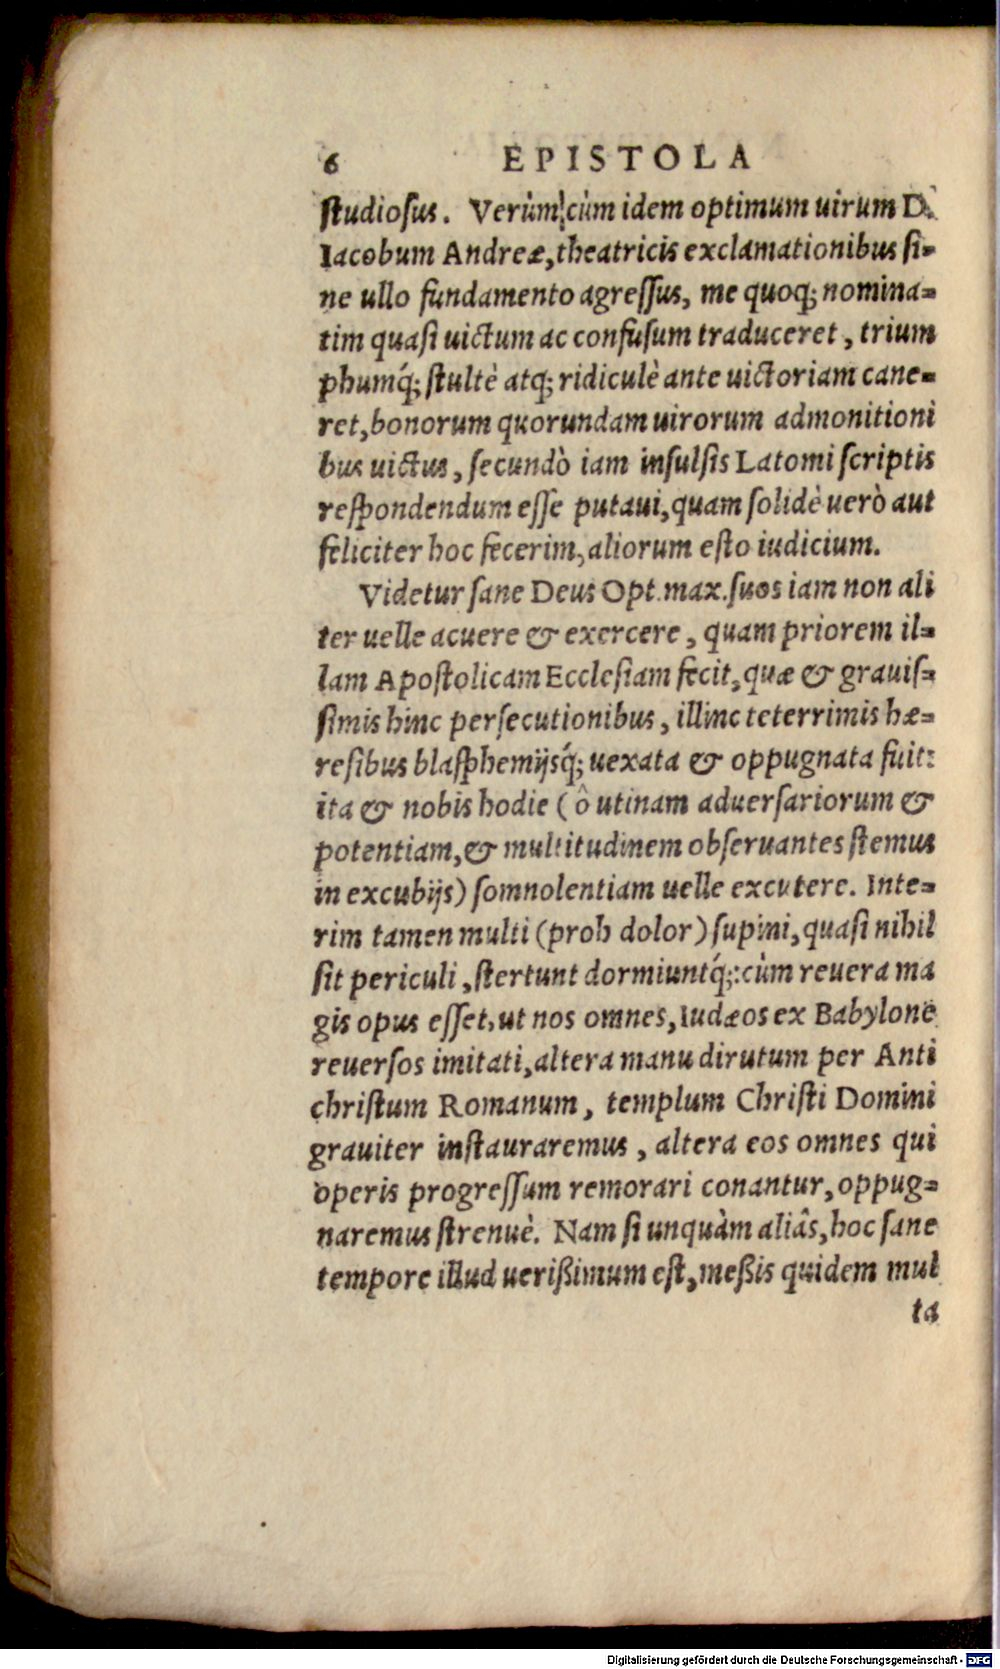 6 EPISTOLA
studiosus. Verùm cùm idem optimum uirum D.
Iacobum Andreæ, theatricis exclamationibus si-
ne ullo fundamento agressus, me quoq; nomina-
tim quasi uictum ac confusum traduceret, trium
phumq́; stultè atq; ridiculè ante uictoriam cane-
ret, bonorum quorundam uirorum admonitioni
bus uictus, secundò iam insulsis Latomi scriptis
respondendum esse putaui, quam solidè uerò aut
feliciter hoc fecerim, aliorum esto iudicium.
Videtur sane Deus Opt. max. suos iam non ali
ter uelle acuere & exercere, quam priorem il-
lam Apostolicam Ecclesiam fecit, quæ & grauis-
simis hinc persecutionibus, illinc teterrimis hæ-
resibus blasphemijsq́; uexata & oppugnata fuit:
ita & nobis hodie (ô utinam aduersariorum &
potentiam, & multitudinem obseruantes stemus
in excubijs) somnolentiam uelle excutere. Inte-
rim tamen multi (proh dolor) supini, quasi nihil
sit periculi, stertunt dormiuntq́;: cùm reuera ma
gis opus esset, ut nos omnes, Iudæos ex Babylone
reuersos imitati, altera manu dirutum per Anti
christum Romanum, templum Christi Domini
grauiter instauraremus, altera eos omnes qui
operis progressum remorari conantur, oppug-
naremus strenuè. Nam si unquàm aliâs, hoc sane
tempore illud uerißimum est, meßis quidem mul
ta
Digitalisierung gefördert durch die Deutsche Forschungsgemeinschaft - DFG